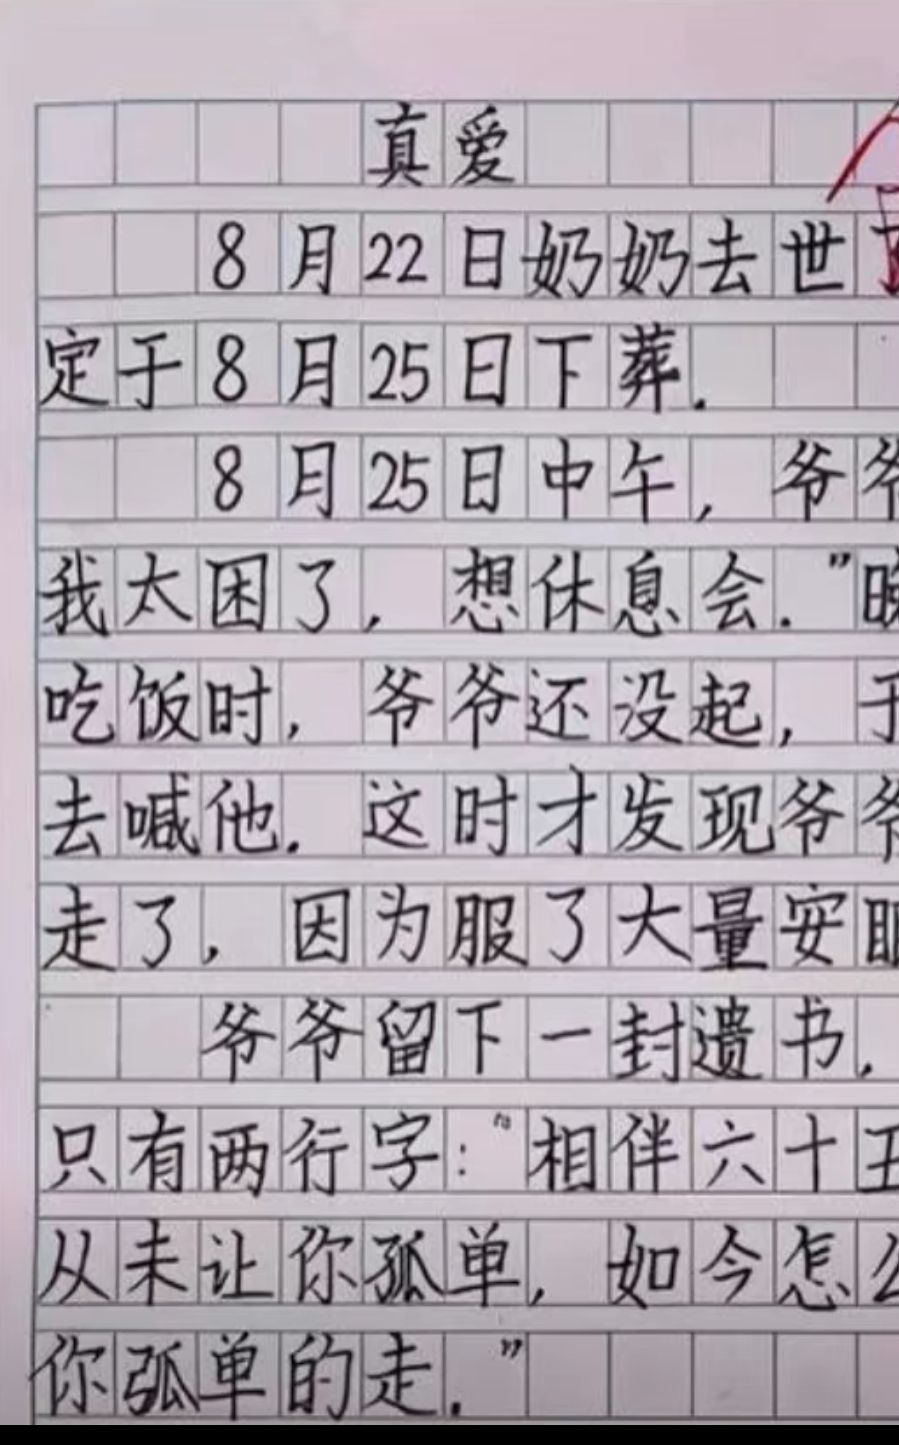 真爱
8月22日奶奶去世了
定于8月25日下葬.
8月25日中午,爷爷
我太困了,想休息会."晚
吃饭时,爷爷还没起,于
去喊他.这时才发现爷爷
走了,因为服了大量安眠
爷爷留下一封遗书,
只有两行字:"相伴六十五
从未让你孤单,如今怎么
你孤单的走."